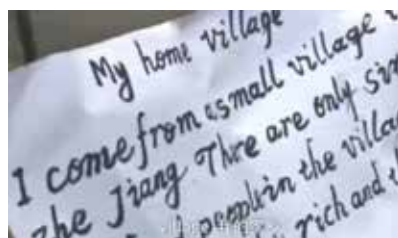 My home village
I come from a small village i
zhe Jiang Thre are only six
people in the villa
rich and t